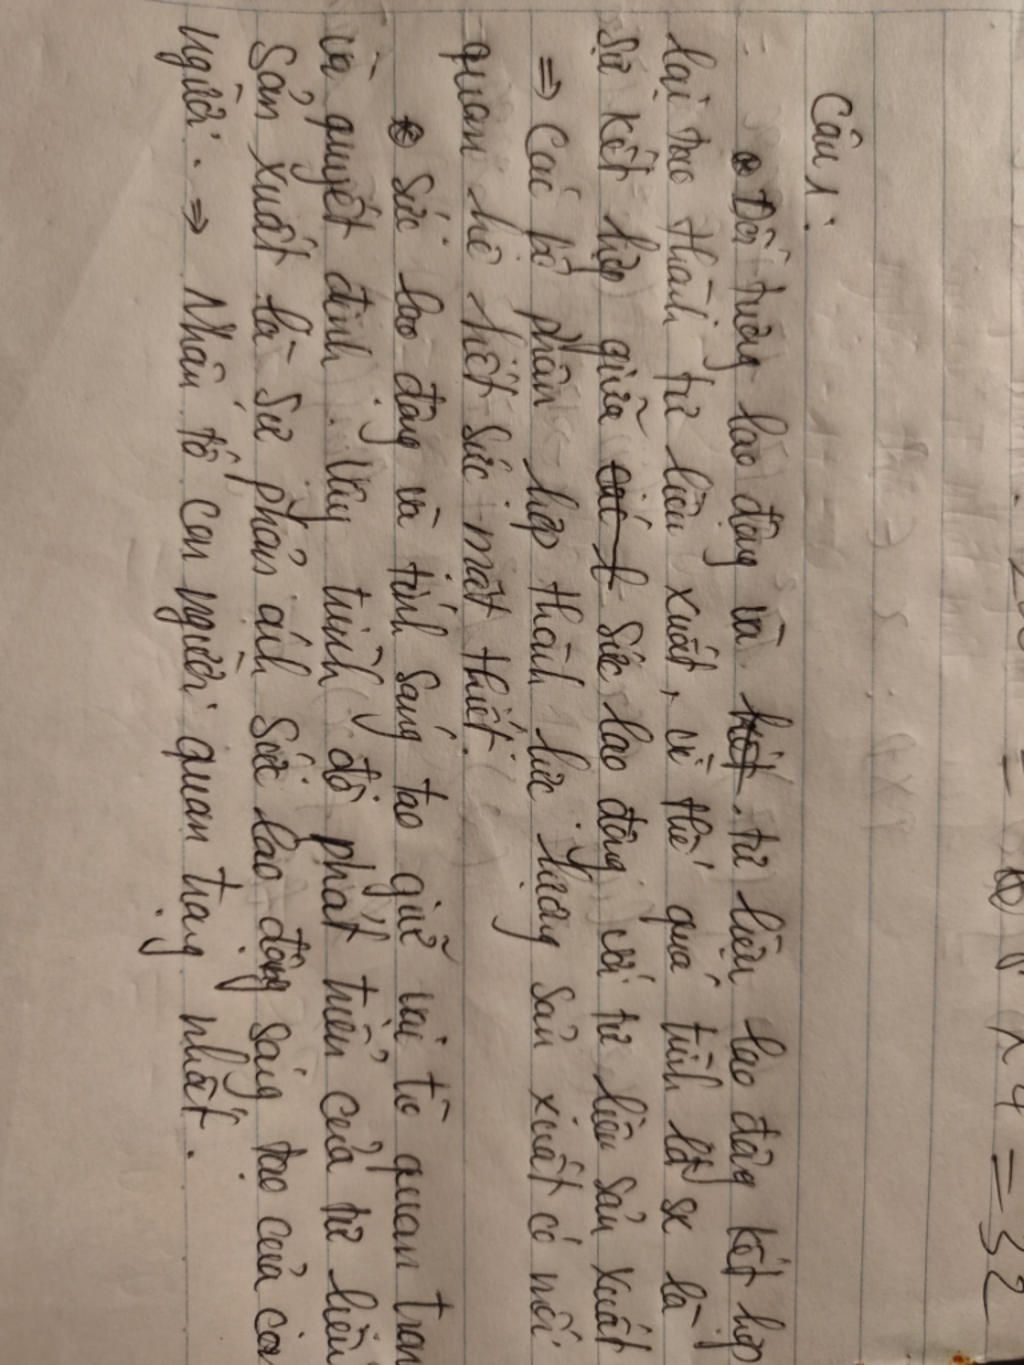 Câu 1:
⊛ Đối tượng lao động và kết tư liệu lao động kết hợp
lại tạo thành tư liệu xuất, vì thế quá trình lđ sx là
sự kết hợp giữa các t sức lao động với tư liệu sản xuất
⇒ Các bộ phận hợp thành lực lượng sản xuất có mối
quan hệ hết sức mật thiết.
⊛ Sức lao động và tính sáng tạo giữ vai trò quan trọn
và quyết định. Vậy trình độ phát triển của tư liệu
sản xuất là sự phản ánh sức lao động sáng tạo của con
người. ⇒ Nhân tố con người quan trọng nhất.
x 4 = 32